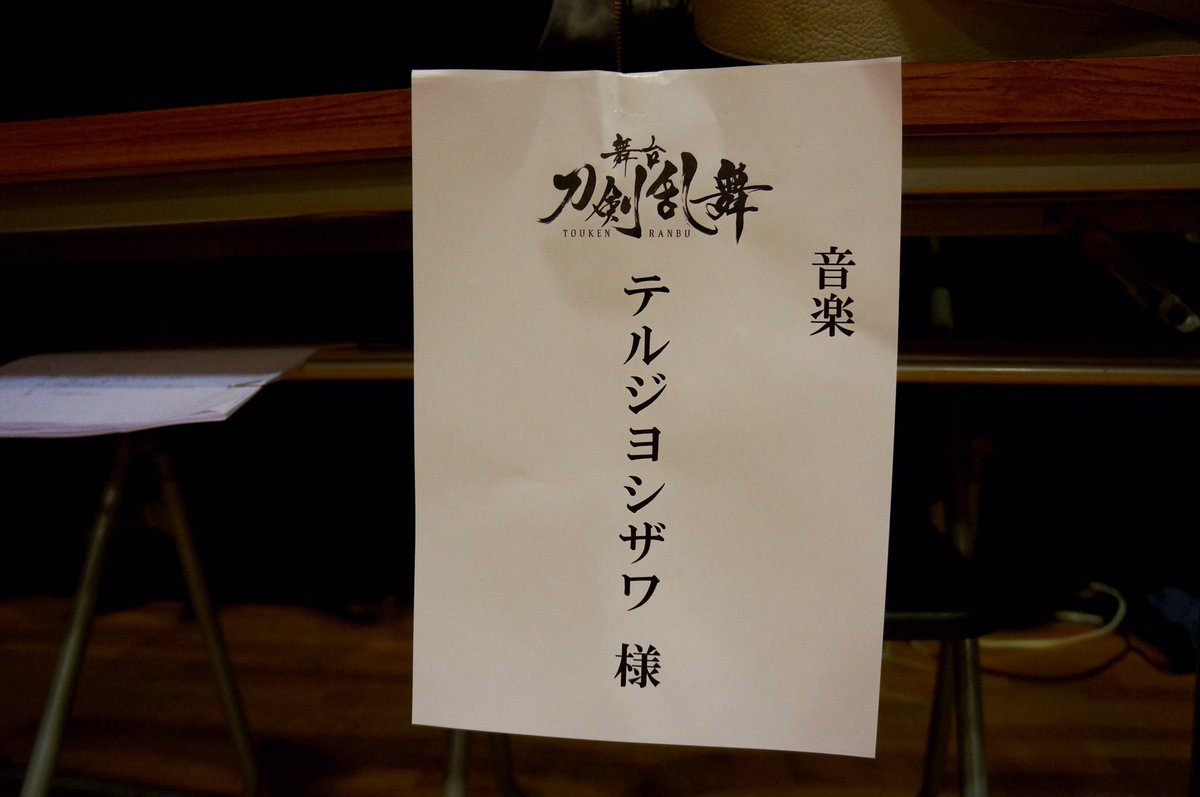 舞台
刀剣乱舞
TOUKEN RANBU
音楽
テルジヨシザワ 様